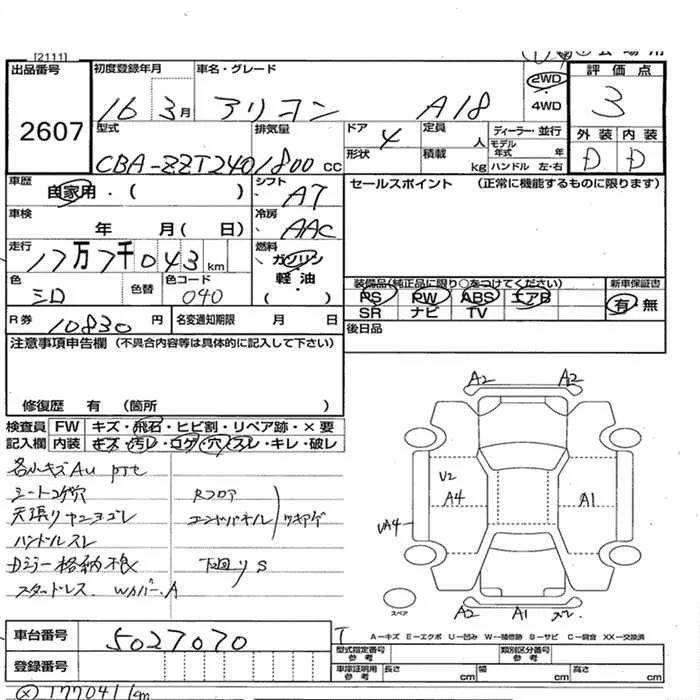 [2111]
出品番号
2607
初度登録年月
16 3月
車名・グレード
アリオン A18
2WD
・
4WD
評価点
3
外装 内装
D D
型式
CBA-ZZT240
排気量
1800 cc
ドア 4
形状
定員 人
積載 kg
ディーラー・並行
モデル年式 年
ハンドル 左・右
車歴 自家用・( )
車検 年 月( 日)
走行 17万7千043km
色 シロ
色替
色コード 040
シフト AT
冷房 AAC
燃料 ガソリン
軽・油
( )
セールスポイント (正常に機能するものに限ります)
装備品(純正品に限り○をつけてください)
PS PW ABS エアB
SR ナビ TV
新車保証書
有・無
後日品
R券 10830円
名変通知期限 月 日
注意事項申告欄 (不具合内容等は具体的に記入して下さい)
修復歴 有 (箇所 )
検査員記入欄
FW キズ・飛石・ヒビ割・リペア跡・×要
内装 キズ・汚レ・コゲ・穴・スレ・キレ・破レ
各小キズAU
シートコゲ穴
天張りヤニヨゴレ
ハンドルスレ
Dミラー格納不良
スタッドレス. Wカバー.A
Rフロア
エンドパネル
ワキアゲ
下回りS
A2 A2
U2
A4
A1
UA4
A2 A1
スペア
A-キズ E-エクボ U-凹み W-補修跡 S-サビ C-腐食 XX-交換済
車台番号 5027070
登録番号
型式指定番号 参考
類別区分番号 参考
車庫証明用 参考 長さ cm 幅 cm 高さ cm
177041km